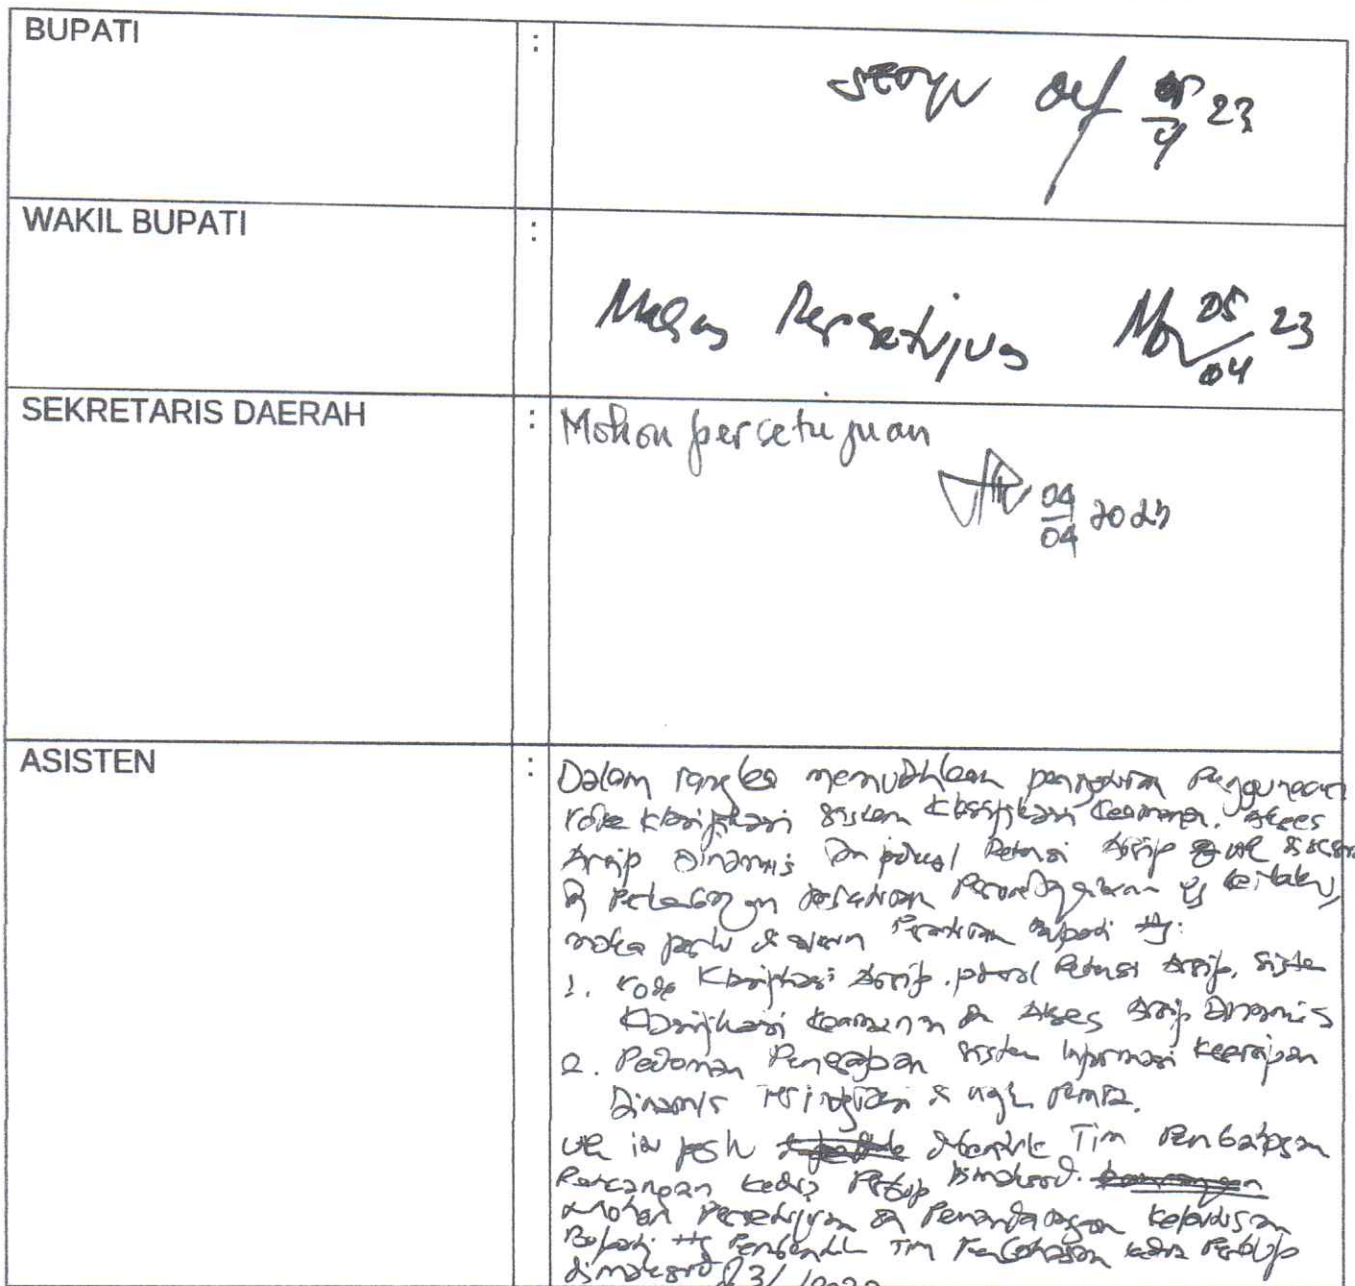 BUPATI :
setuju 05/4 23
WAKIL BUPATI :
Mohon Persetujuan 05/04 23
SEKRETARIS DAERAH :
Mohon persetujuan
04/04 2023
ASISTEN :
Dalam rangka memudahkan Penggunaan
kode klasifikasi sistem klasifikasi keamanan, akses
Arsip Dinamis Retensi Arsip
maka perlu Peraturan Bupati ttg:
1. Kode Klasifikasi Arsip, Retensi Arsip, Sistem
Klasifikasi keamanan & Akses Arsip Dinamis
2. Pedoman Penerapan Sistem Informasi Kearsipan
Dinamis Terintegrasi
utk ini perlu dibentuk Tim Pembahasan
Rancangan kedua Perbup dimaksud.
Mohon Persetujuan & Penandatanganan Keputusan
Bupati ttg Pembentuk Tim Pembahasan kedua Perbup
dimaksud